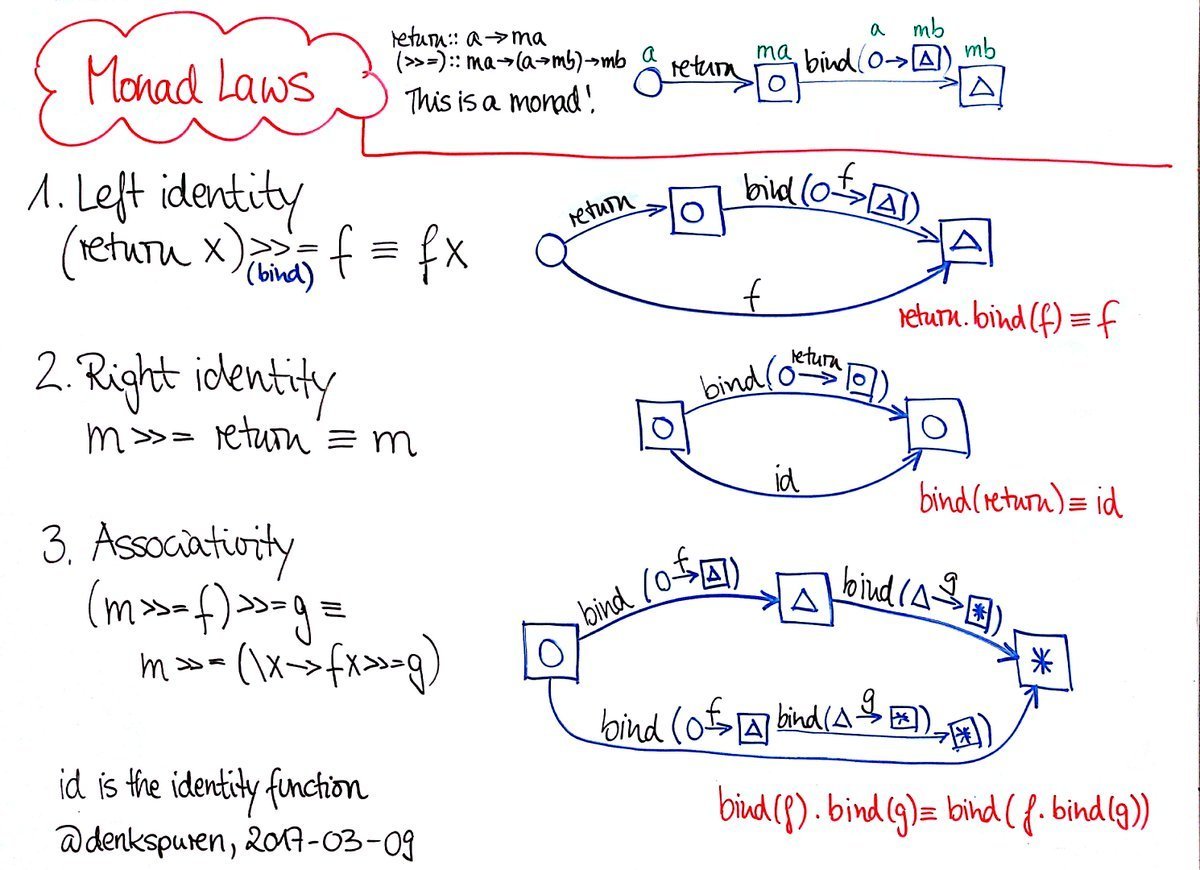 Monad Laws
return:: a→ma
(>>=):: ma→(a→mb)→mb
This is a monad!
a return ma bind(○→△) a mb mb
1. Left identity
(return x)>>= f ≡ fx
(bind)
return bind(○→△) f
f
return.bind(f)≡f
2. Right identity
m>>= return ≡ m
bind(○→○) return
id
bind(return)≡id
3. Associativity
(m>>=f)>>=g≡
m>>=(\x→fx>>=g)
bind (○→△) f bind(△→*) g
*
bind (○→△ bind(△→*)→*) f g
bind(f).bind(g)≡bind(f.bind(g))
id is the identity function
@denkspuren, 2017-03-09